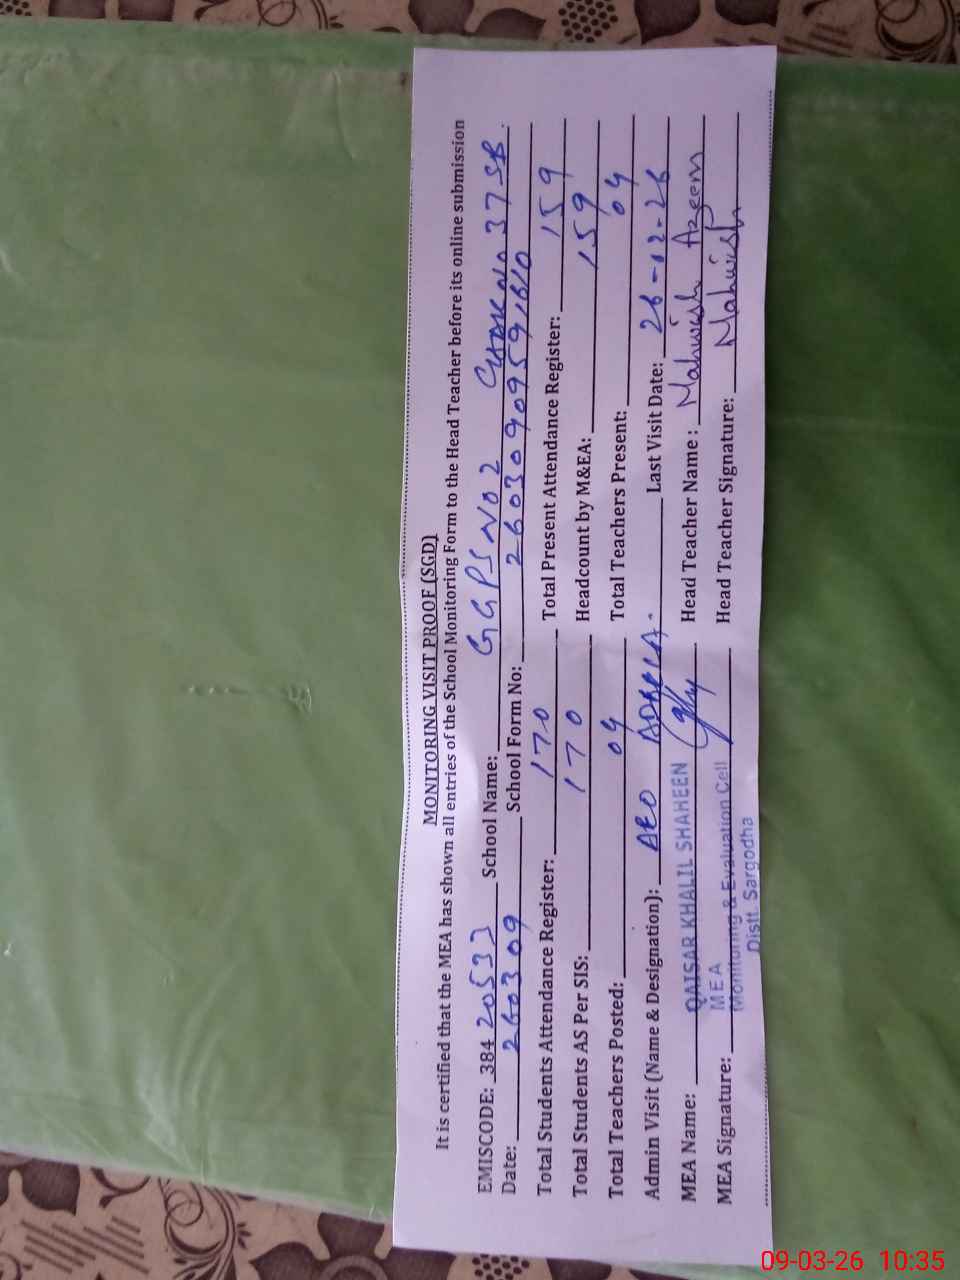 MONITORING VISIT PROOF (SGD)
It is certified that the MEA has shown all entries of the School Monitoring Form to the Head Teacher before its online submission
EMISCODE: 384 20533 School Name: GGPS NO 2 CHAK NO 37 SB.
Date: 260309 School Form No: 26030909591610
Total Students Attendance Register: 170 Total Present Attendance Register: 159
Total Students AS Per SIS: 170 Headcount by M&EA: 159
Total Teachers Posted: 04 Total Teachers Present: 04
Admin Visit (Name & Designation): AEO Last Visit Date: 26-02-26
MEA Name: QAISAR KHALIL SHAHEEN Head Teacher Name : Mahwish Azeem
MEA
MEA Signature: Monitoring & Evaluation Cell Head Teacher Signature: Mahwish
Distt. Sargodha
09-03-26 10:35